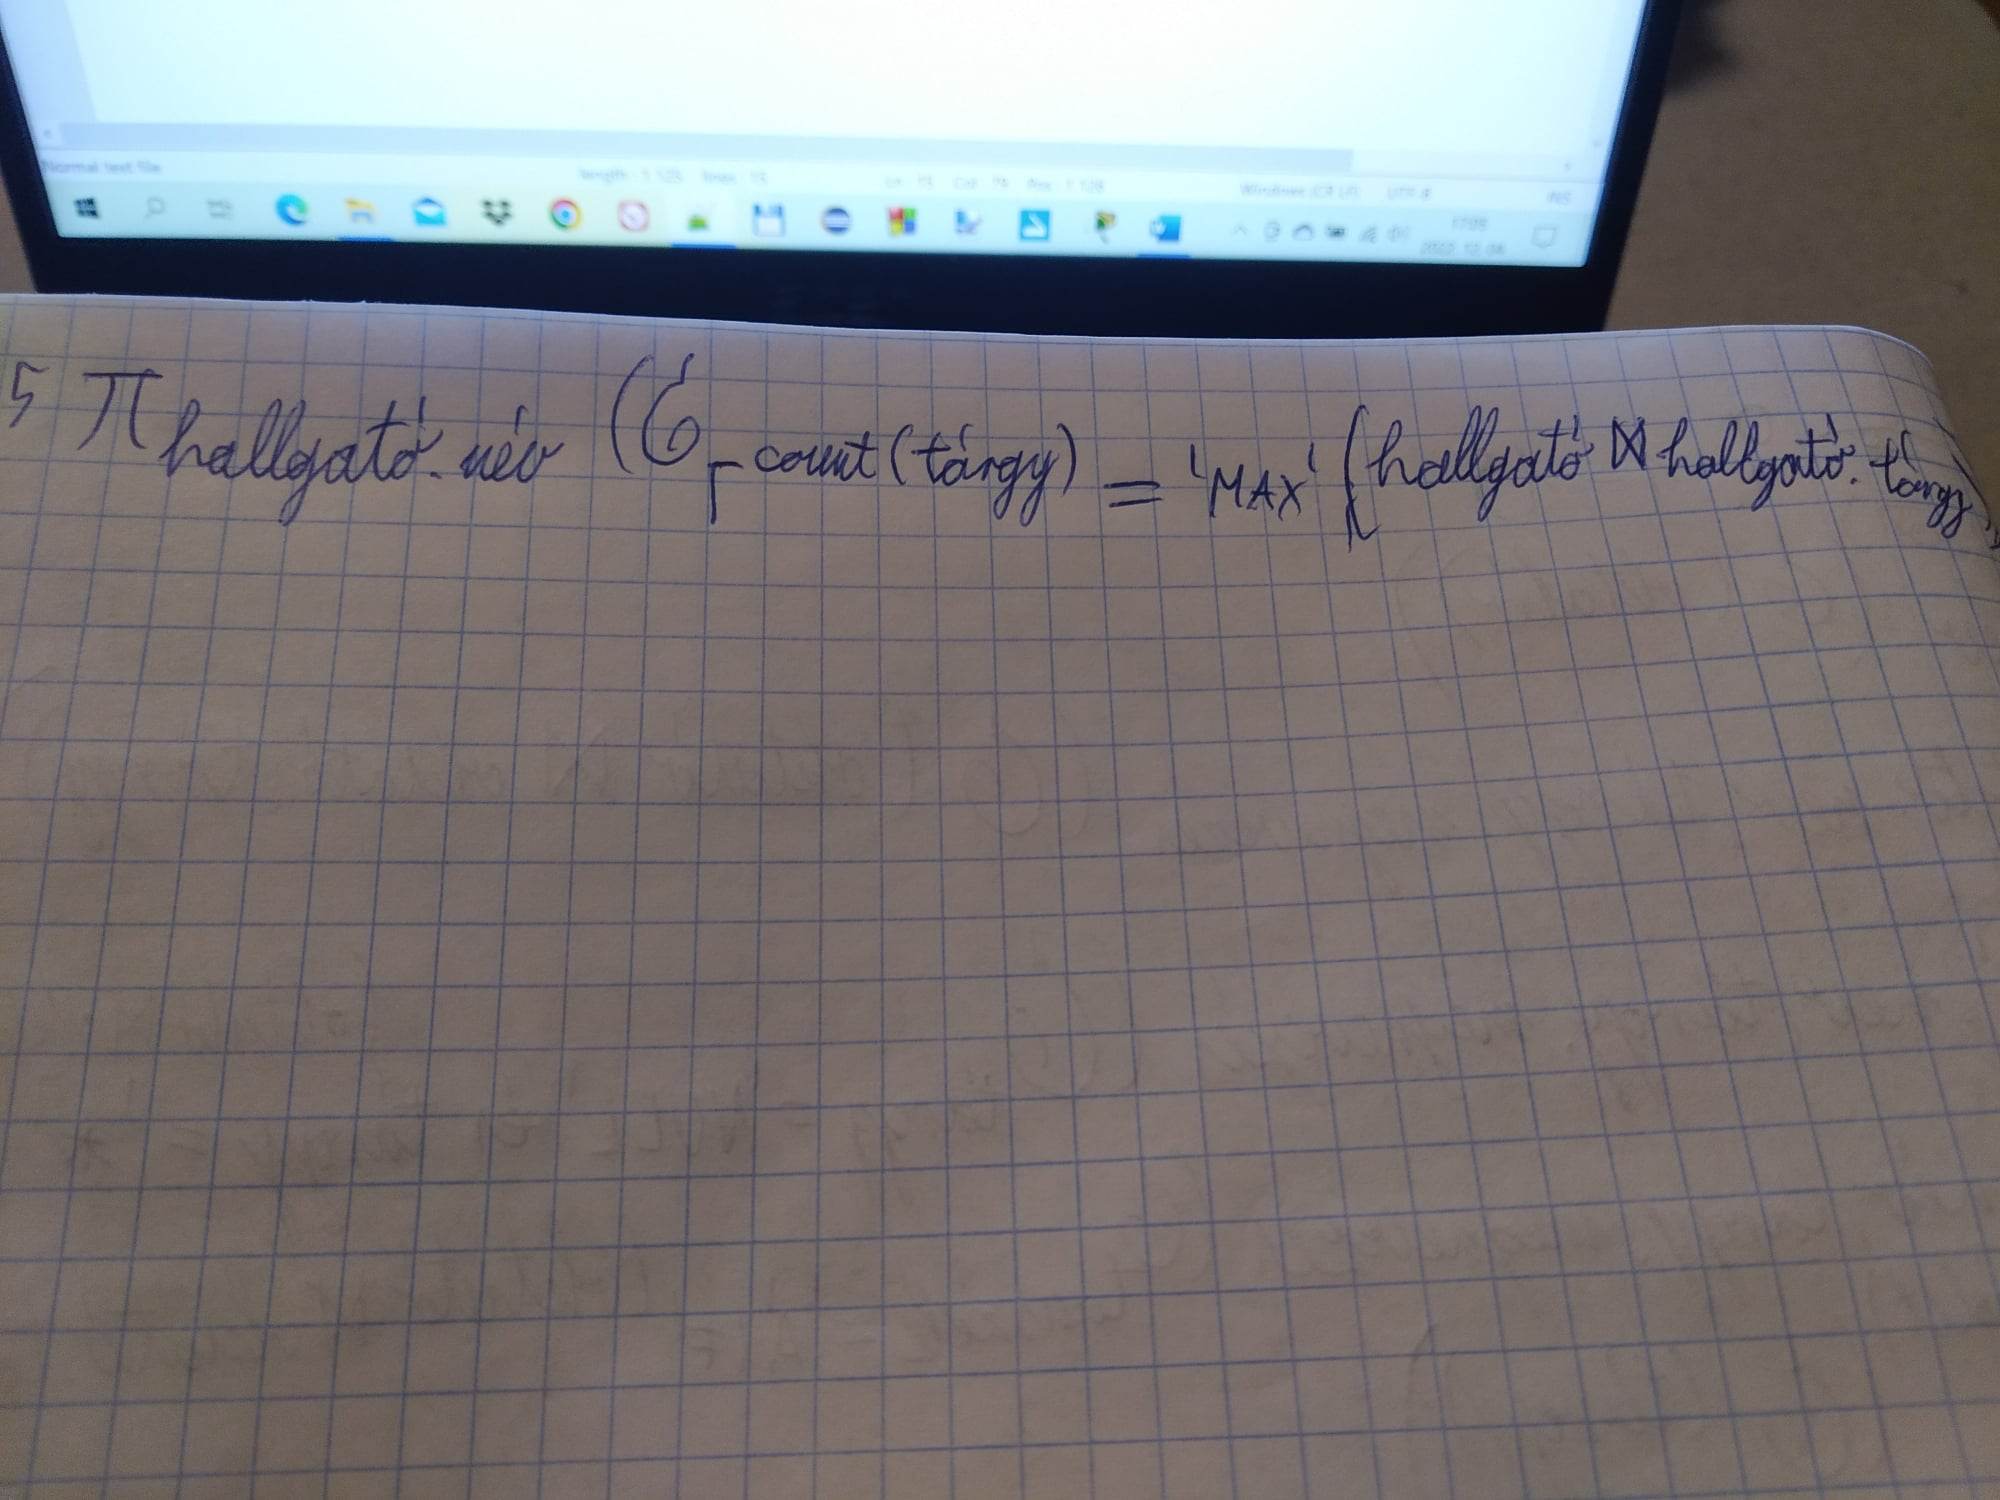 Normal text file length : 1 125 lines : 15 Ln : 15 Col : 74 Pos : 1 126 Windows (CR LF) UTF-8 INS
17:05
2022. 12. 04.
5 π hallgató.név (σ Γ count(tárgy) = 'MAX' (hallgató ⋈ hallgató.tárgy)